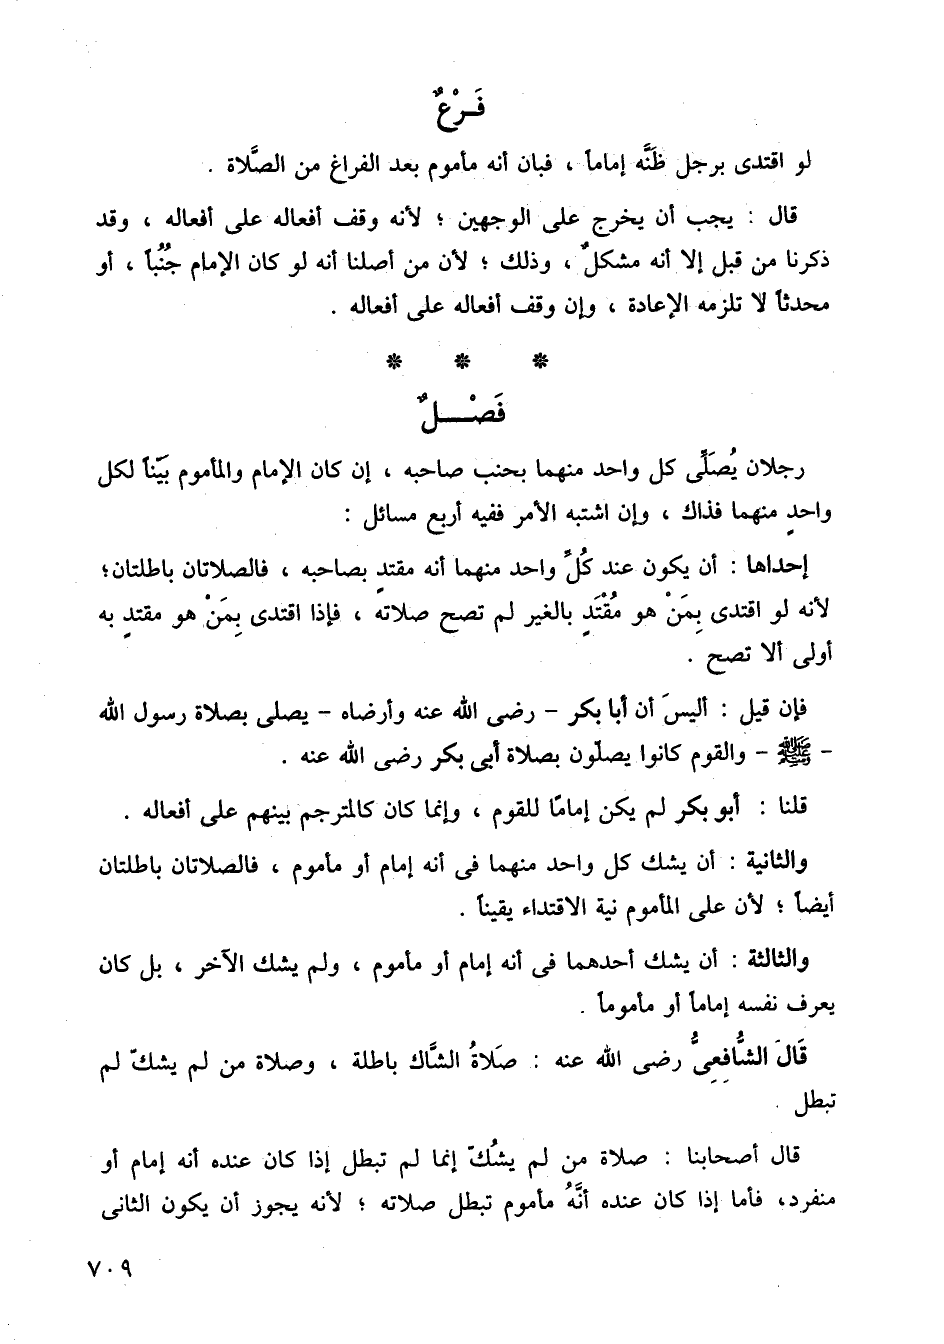 فَـرْعٌ
لو اقتدى برجل ظَنَّه إماماً ، فبان أنه مأموم بعد الفراغ من الصَّلاة .
قال : يجب أن يخرج على الوجهين ؛ لأنه وقف أفعاله على أفعاله ، وقد
ذكرنا من قبل إلا أنه مشكلٌ ، وذلك ؛ لأن من أصلنا أنه لو كان الإمام جُنُباً ، أو
محدثاً لا تلزمه الإعادة ، وإن وقف أفعاله على أفعاله .
* * *
فَصْـــلٌ
رجلان يُصَلِّى كل واحد منهما بحنب صاحبه ، إن كان الإمام والمأموم بَيّناً لكل
واحدٍ منهما فذاك ، وإن اشتبه الأمر ففيه أربع مسائل :
إحداها : أن يكون عند كُلِّ واحد منهما أنه مقتدٍ بصاحبه ، فالصلاتان باطلتان؛
لأنه لو اقتدى بِمَنْ هو مُقْتَدٍ بالغير لم تصح صلاته ، فإذا اقتدى بِمَنْ هو مقتدٍ به
أولى ألا تصح .
فإن قيل : أليسَ أن أبا بكر - رضى الله عنه وأرضاه - يصلى بصلاة رسول الله
- ﷺ - والقوم كانوا يصلّون بصلاة أبى بكر رضى الله عنه .
قلنا : أبو بكر لم يكن إمامًا للقوم ، وإنما كان كالمترجم بينهم على أفعاله .
والثانية : أن يشك كل واحد منهما فى أنه إمام أو مأموم ، فالصلاتان باطلتان
أيضاً ؛ لأن على المأموم نية الاقتداء يقيناً .
والثالثة : أن يشك أحدهما فى أنه إمام أو مأموم ، ولم يشك الآخر ، بل كان
يعرف نفسه إماماً أو مأموماً .
قَالَ الشَّافِعِىُّ رضى الله عنه : صَلاةُ الشَّاك باطلة ، وصلاة من لم يشكّ لم
تبطل .
قال أصحابنا : صلاة من لم يشُكّ إنما لم تبطل إذا كان عنده أنه إمام أو
منفرد، فأما إذا كان عنده أنَّهُ مأموم تبطل صلاته ؛ لأنه يجوز أن يكون الثانى
٧٠٩